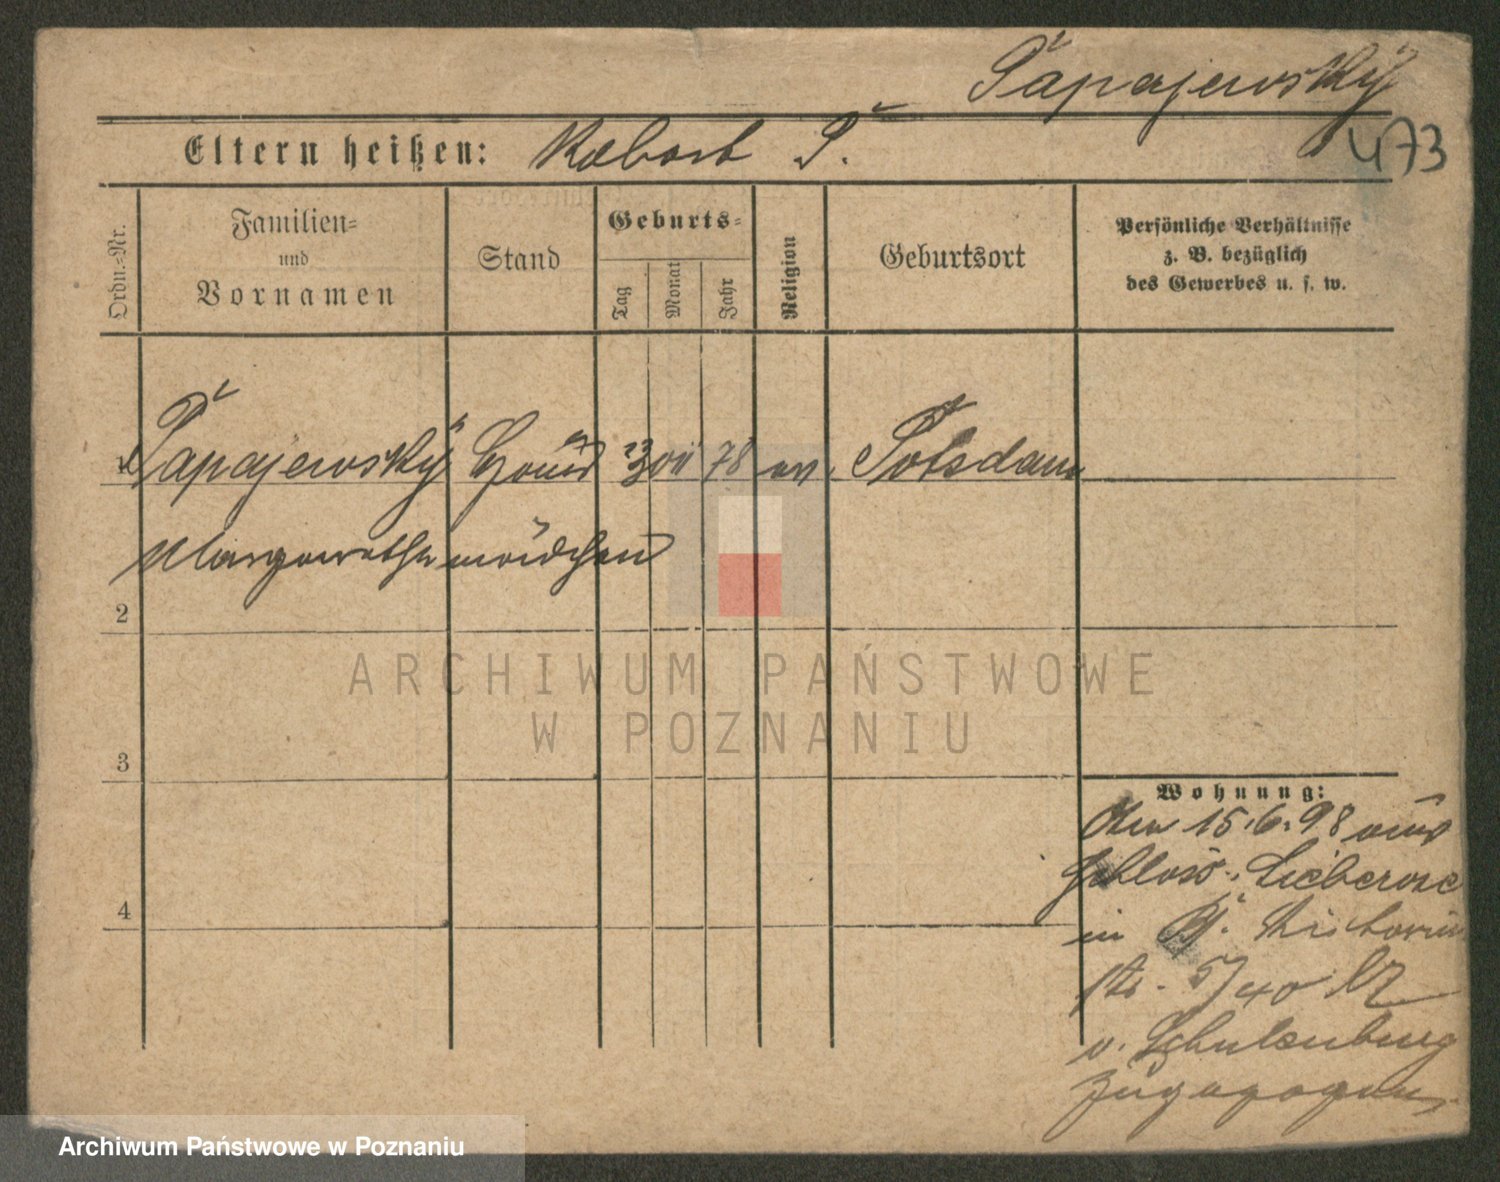 Papajewsky
473
Eltern heißen: Robert P.
Ordn.-Nr.
Familien-
und
Vornamen
Stand
Geburts-
Tag
Monat
Jahr
Religion
Geburtsort
Persönliche Verhältnisse
z. B. bezüglich
des Gewerbes u. s. w.
1 Papajewsky Haus 78 ev. Potsdam
Margarethe mädchen
2
3
4
Wohnung:
15.6.98 aus
Schloss Lieberose
in
5/40 bz
v. Schulenburg
zugezogen.
ARCHIWUM PAŃSTWOWE
W POZNANIU
Archiwum Państwowe w Poznaniu